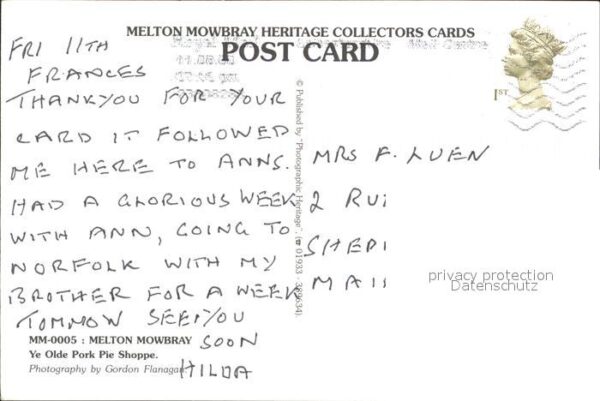 MELTON MOWBRAY HERITAGE COLLECTORS CARDS
POST CARD
1ST
FRI 11TH
FRANCES
THANKYOU FOR YOUR
CARD IT FOLLOWED
ME HERE TO ANNS.
HAD A GLORIOUS WEEK
WITH ANN, GOING TO
NORFOLK WITH MY
BROTHER FOR A WEEK
TOMMOW SEE YOU
SOON
HILDA
© Published by "Photographic Heritage", (☎ 01933 - 389634).
MRS F. LUEN
2 RUI
SHEPI
MAII
privacy protection
Datenschutz
MM-0005 : MELTON MOWBRAY
Ye Olde Pork Pie Shoppe.
Photography by Gordon Flanagan.